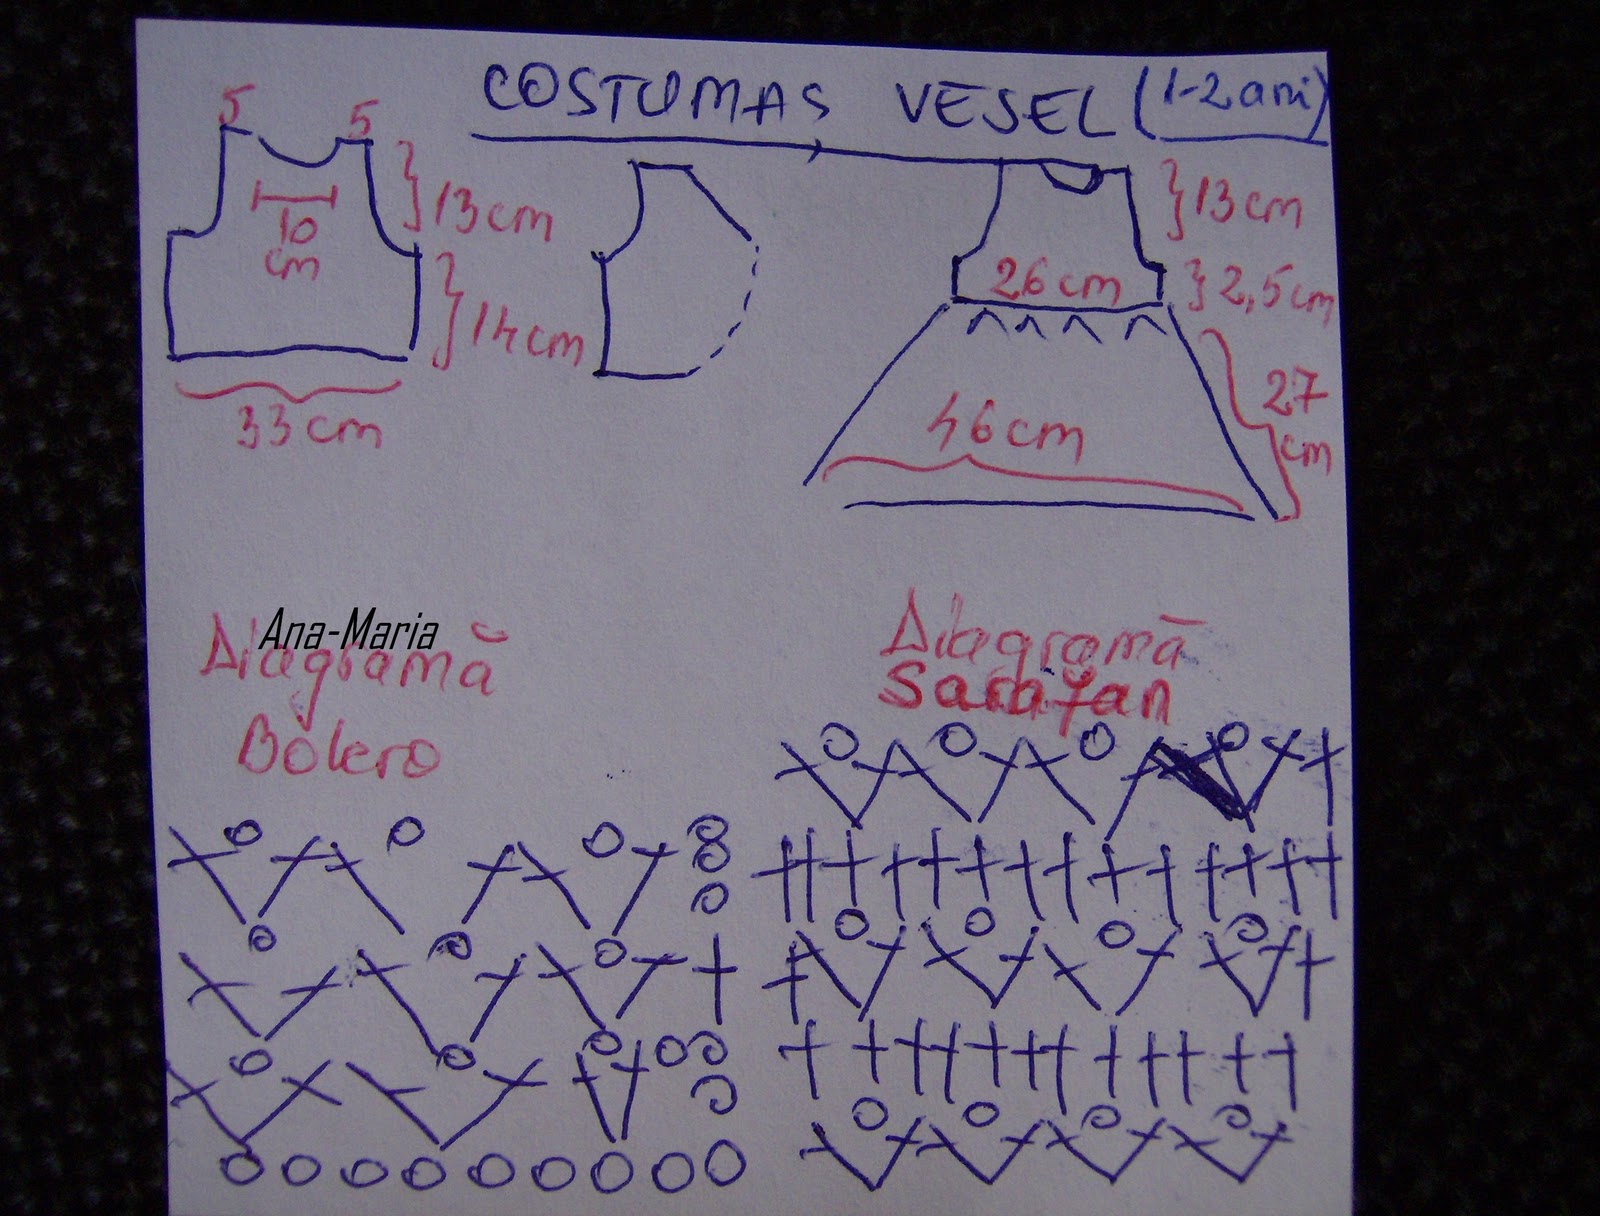 COSTUMAS VESEL (1-2 ani)
5 5
10
cm
13cm
14cm
33cm
13cm
26cm
2,5cm
46cm
27
cm
Ana-Maria
Diagramă
Bolero
Diagramă
Sarafan